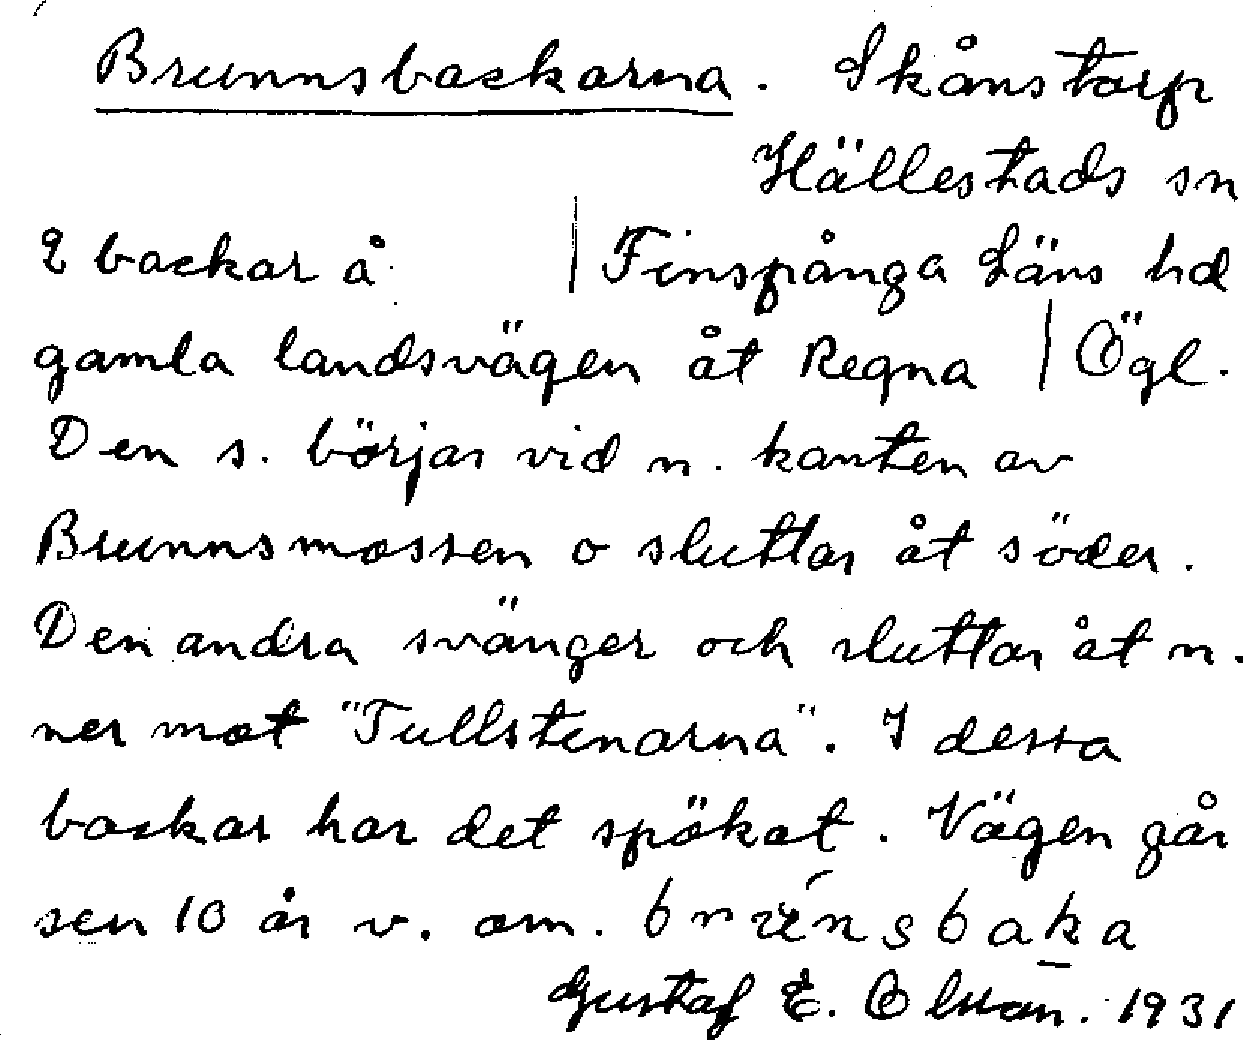 Brunnsbackarna. Skånstorp
Hällestads sn
2 backar å | Finspånga Läns hd
gamla landsvägen åt Regna | Ögl.
Den s. börjar vid n. kanten av
Brunnsmossen o sluttar åt söder.
Den andra svänger och sluttar åt n.
ner mot "Tullstenarna". I dessa
backar har det spökat. Vägen går
sen 10 år v. om.
Gustaf E. Olsson. 1931